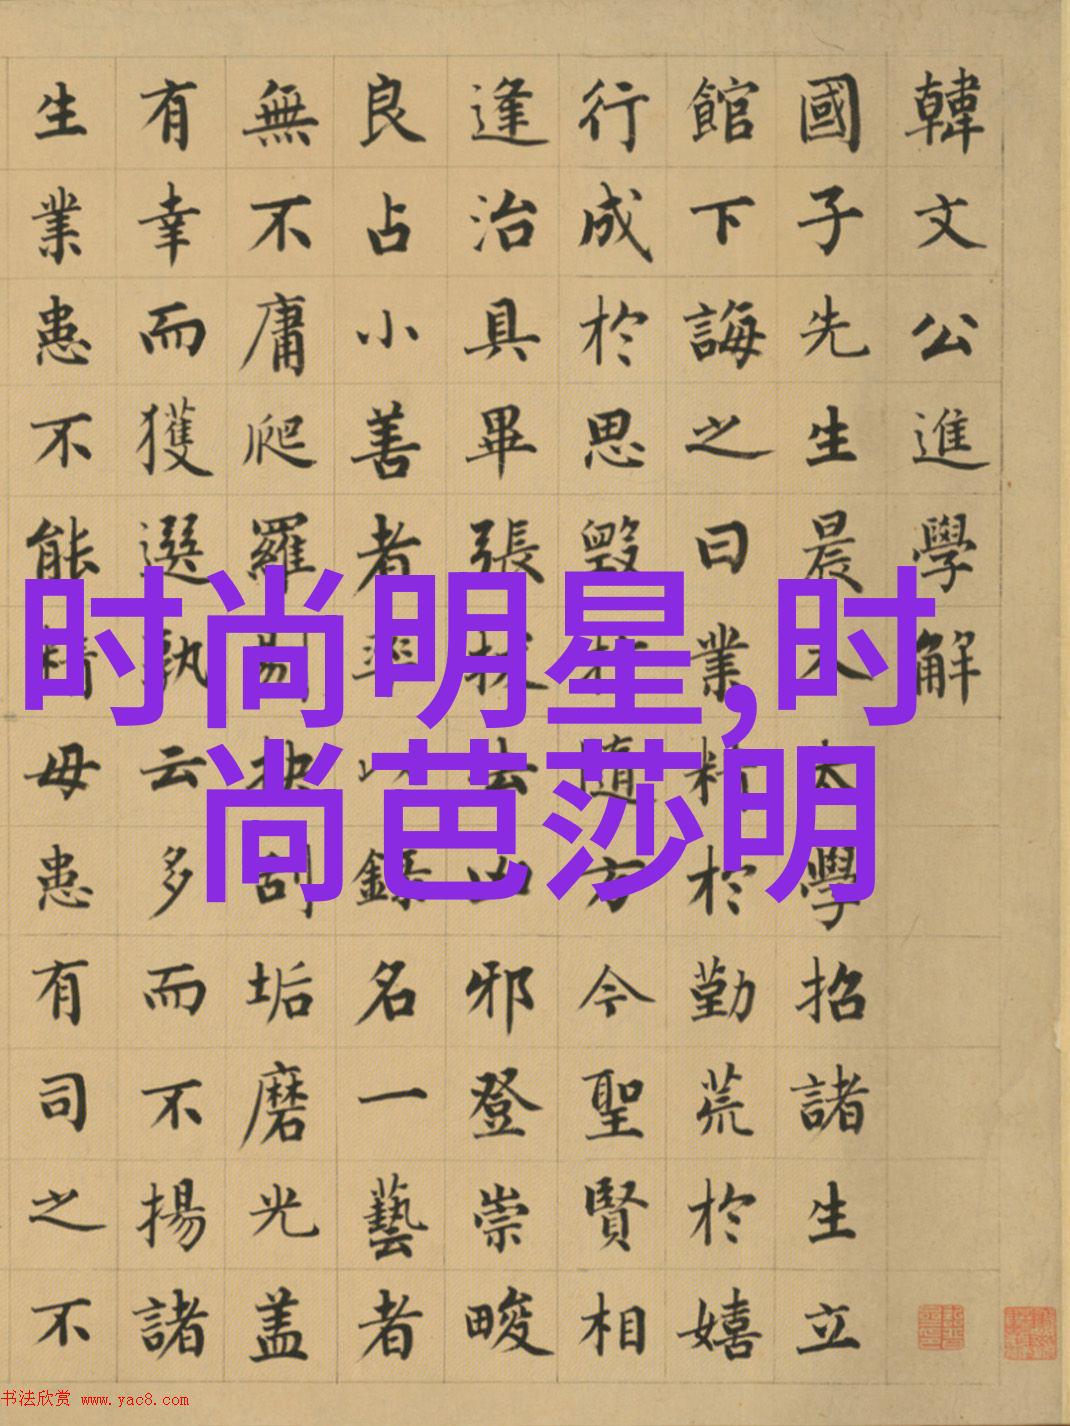 韓文公進學解
國子先生晨入太學招諸生立
館下誨之曰業精於勤荒於嬉
行成於思毀於隨方今聖賢相
逢治具畢張拔去凶邪登崇畯
良占小善者率以錄名一藝者
無不庸爬羅剔抉刮垢磨光盖
有幸而獲選孰云多而不揚諸
生業患不能精毋患有司之不
时尚明星,时
尚芭莎明
书法欣赏 www.yac8.com